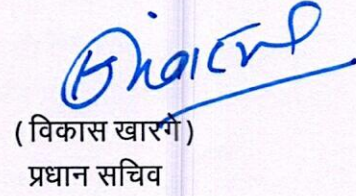 ( विकास खारगे )
प्रधान सचिव